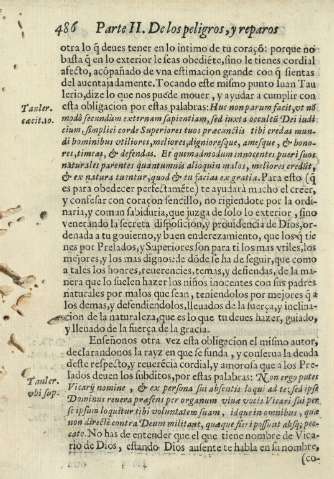 486 Parte II. De los peligros, y reparos
otra lo q̃ deues tener en lo intimo de tu coraçõ: porque no
basta q̃ en lo exterior le seas obediẽte, sino le tienes cordial
afecto, acõpañado de vna estimacion grande con q̃ sientas
del auentajadamente. Tocando este mismo punto Iuan Tau
lerio, dize lo que nos puede mouer, y ayudar a cumplir con
esta obligacion por estas palabras: Huc non parum facit, vt nõ
Tauler.
modò secundum externam sapientiam, sed iuxta occultũ Dei iudi
cit. 10.
cium, simplici corde Superiores tuos præcunctis tibi credas mun-
di hominibus vtiliores, meliores, digniores­que, ames­que, & hono-
res, timeas, & defendas. Et quemadmodum innocentes pueri suos
naturales parentes quantumuis alioquin malos, meliores credũt,
& ex natura tuentur, quod & tu facias ex gratia. Para esto (q̃
es para obedecer perfectamẽte) te ayudará mucho el creer,
y confesar con coraçon sencillo, no rigiendote por la ordi-
naria, y comun sabiduria, que juzga de solo lo exterior, sino
venerando la secreta disposicion, y prouidencia de Dios, or-
denada a tu gouierno, y buen endereçamiento, que los q̃ tie
nes por Prelados, y Superiores son para ti los mas vtiles, los
mejores, y los mas dignos: de dõde se ha de seguir, que como
a tales los honres, reuerencies, temas, y defiendas, de la ma-
nera que lo suelen hazer los niños inocentes con sus padres
naturales por malos que sean, teniendolos por mejores q̃ a
los demas, y defendiendolos, lleuados de la fuerça, y inclina-
cion de la naturaleza, que es lo que tu deues hazer, guiado,
y lleuado de la fuerça de la gracia.
Enseñonos otra vez esta obligacion el mismo autor,
declarandonos la razõ en que se funda, y conserua la deuda
deste respecto, y reuerẽcia cordial, y amorosa que a los Pre-
Tauler.
lados deuen los subditos, por estas palabras: Non ergo putes
vbi sup.
Vicarij nomine, & ex persona sui absentis loqui ad te, sed ipse
Dominus reuera præsens per organum viuæ vocis Vicarij sui per
se ipsum loquitur tibi voluntatem suam, idque in omnibus, quæ
non directè contra Deum militant, quæque fieri possunt absq; pec-
cato. No has de entender que el que tiene nombre de Vica-
rio de Dios, estando Dios ausente te habla en su nombre,
(co-